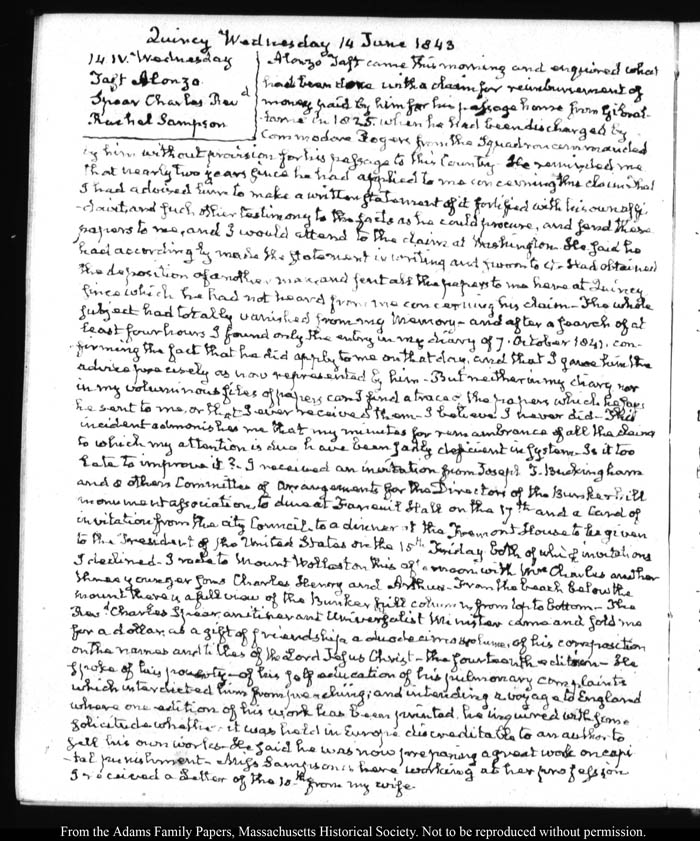 Quincy Wednesday 14 June 1843
14. IV. Wednesday
Taft Alonzo.
Spear Charles Rev.d
Rachel Sampson
Alonzo Taft came this morning and enquired what
had been done with a claim for reimbursement of
money paid by him for his passage home from Gibral-
tar in 1825. when he had been discharged by
Commodore Rogers from the Squadron commanded
by him without provision for his passage to this Country. He reminded me
that nearly two years since he had applied to me concerning this claim that
I had advised him to make a written statement of it fortified with his own affi-
davit and such other testimony to the facts as he could procure, and send these
papers to me, and I would attend to the claim at Washington. He said he
had accordingly made the statement in writing and sworn to it. Had obtained
the deposition of another man and sent all the papers to me here at Quincy
since which he had not heard from me concerning his claim. The whole
subject had totally vanished from my memory. and after a search of at
least four hours I found only the entry in my diary of 7. October 1841. con-
firming the fact that he did apply to me on that day, and that I gave him the
advice precisely as now represented by him. But neither in my diary nor
in my voluminous files of papers can I find a trace of the papers which he says
he sent to me, or that I ever received them. I believe I never did. This
incident admonishes me that my minutes for remembrance of all the claims
to which my attention is due have been sadly deficient in system. Is it too
late to improve it? I received an invitation from Joseph T. Buckingham
and 8 others Committee of Arrangements for the Directors of the Bunker hill
monument association, to dine at Faneuil Hall on the 17th and a Card of
invitation from the City Council to a dinner at the Tremont House to be given
to the President of the United States on the 15th Friday both of which invitations
I declined. I rode to Mount Wollaston this afternoon with Mrs Charles and her
three younger sons Charles Henry and Arthur. From the beach below the
mount there is a full view of the Bunker hill column, from top to bottom. The
Rev.d Charles Spear, an itinerant Universalist Minister came and sold me
for a dollar, as a gift of friendship a duodecimo volume, of his composition
on the names and titles of the Lord Jesus Christ. the fourteenth edition. He
spoke of his poverty of his self education of his pulmonary complaints
which interdicted him from preaching; and intending a voyage to England
where one edition of his work has been printed, he inquired with some
solicitude whether it was held in Europe discreditable to an author to
sell his own works. He said he was now preparing a great work on capi-
tal punishment. Miss Sampson is here working at her profession
I received a Letter of the 10th from my wife.
From the Adams Family Papers, Massachusetts Historical Society. Not to be reproduced without permission.